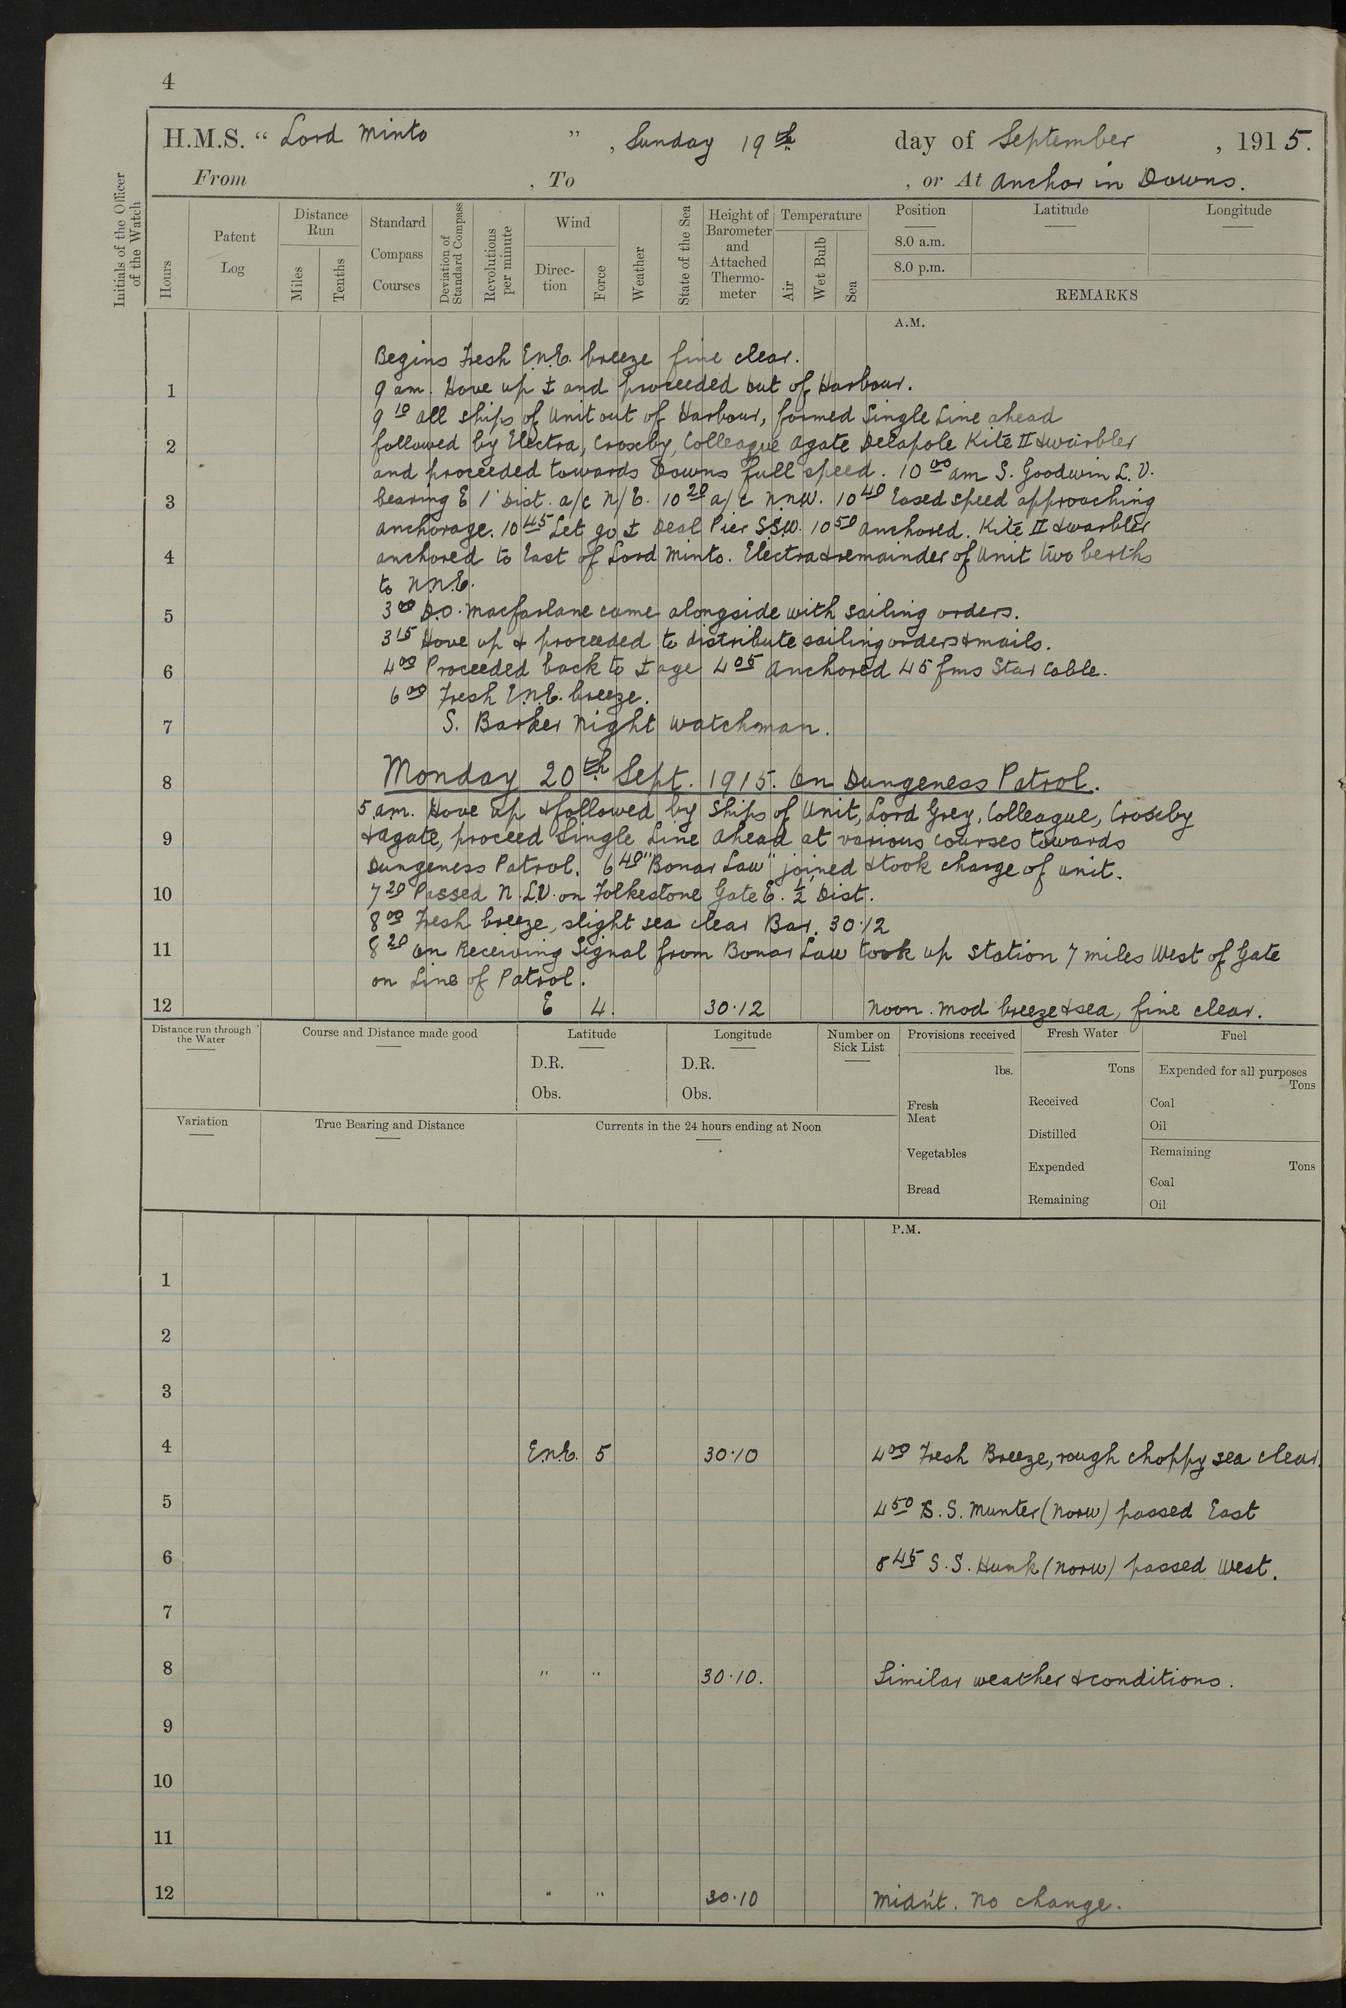 4
H.M.S. " Lord Minto ", Sunday 19th day of September, 1915.
From , To , or At Anchor in Downs.
Initials of the Officer of the Watch
Hours
Patent Log
Distance Run
Miles
Tenths
Standard Compass Courses
Deviation of Standard Compass
Revolutions per minute
Wind
Direction
Force
Weather
State of the Sea
Height of Barometer and Attached Thermometer
Temperature
Air
Wet Bulb
Sea
Position
8.0 a.m.
8.0 p.m.
Latitude
Longitude
REMARKS
A.M.
Begins Fresh E.N.E. breeze fine clear.
1
9 am. Hove up ⚓ and proceeded out of Harbour.
9 10 All ships of Unit out of Harbour, formed Single Line ahead
2
followed by Electra, Crosby, Colleague Agate Delapole Kite II & Warbler
and proceeded towards Downs full speed. 10 00 am S. Goodwin L.V.
3
bearing E 1' Dist. a/c N/E. 10 20 a/c N.N.W. 10 40 Eased speed approaching
anchorage. 10 45 Let go ⚓ Deal Pier S.S.W. 10 50 anchored. Kite II & Warbler
4
anchored to East of Lord Minto. Electra & remainder of Unit two berths
to N.N.E.
5
3 00 D.O. Macfarlane came alongside with sailing orders.
3 15 Hove up & proceeded to distribute sailing orders & mails.
6
4 00 Proceeded back to ⚓age 4 05 Anchored 45 fms Star cable.
6 00 Fresh E.N.E. breeze.
7
S. Barker Night watchman.
8
Monday 20th Sept. 1915. On Dungeness Patrol.
5 am. Hove up & followed by Ships of Unit, Lord Grey, Colleague, Crosby
9
& Agate, proceed Single Line Ahead at various courses towards
Dungeness Patrol. 6 40 "Bonar Law" joined & took charge of unit.
10
7 20 Passed N.L.V. on Folkestone Gate E. ½' Dist.
8 00 Fresh breeze, slight sea clear Bar. 30.12
11
8 20 On Receiving Signal from Bonar Law took up station 7 miles West of Gate
on Line of Patrol.
12 E 4. 30.12 Noon. Mod breeze & sea, fine clear.
Distance run through the Water
Course and Distance made good
Latitude
D.R.
Obs.
Longitude
D.R.
Obs.
Number on Sick List
Provisions received
lbs.
Fresh Meat
Vegetables
Bread
Fresh Water
Tons
Received
Distilled
Expended
Remaining
Fuel
Expended for all purposes
Tons
Coal
Oil
Remaining
Tons
Coal
Oil
Variation
True Bearing and Distance
Currents in the 24 hours ending at Noon
P.M.
1
2
3
4 E.N.E. 5 30.10 4 00 Fresh Breeze, rough choppy sea clear.
5 4 50 S.S. Munter (Norw) passed East
6 8 45 S.S. Hunk (Norw) passed West.
7
8 " " 30.10. Similar weather & conditions.
9
10
11
12 " " 30.10 Midn't. No change.